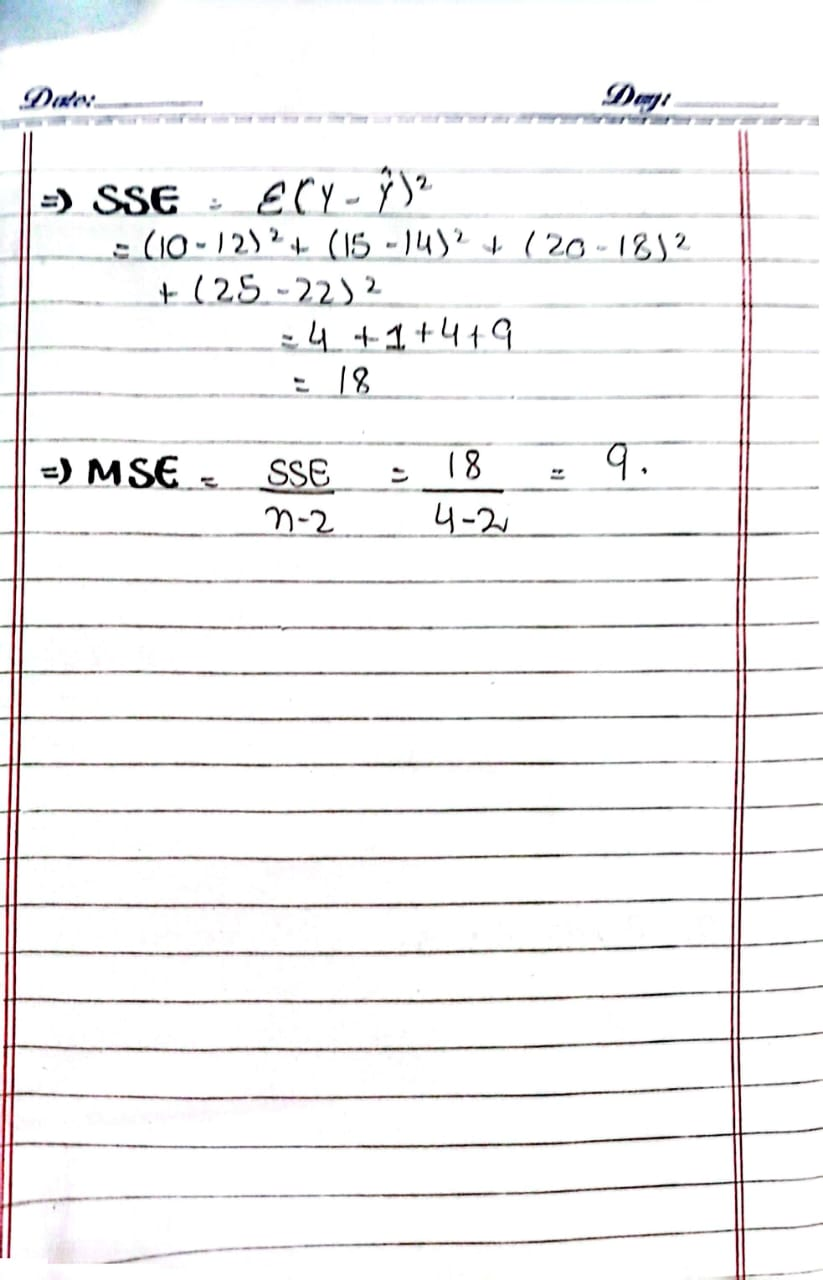 Date: Day:
=) SSE = Ɛ(Y - Ŷ)²
= (10 - 12)² + (15 - 14)² + (20 - 18)²
+ (25 - 22)²
= 4 + 1 + 4 + 9
= 18
=) MSE = SSE/n-2 = 18/4-2 = 9.